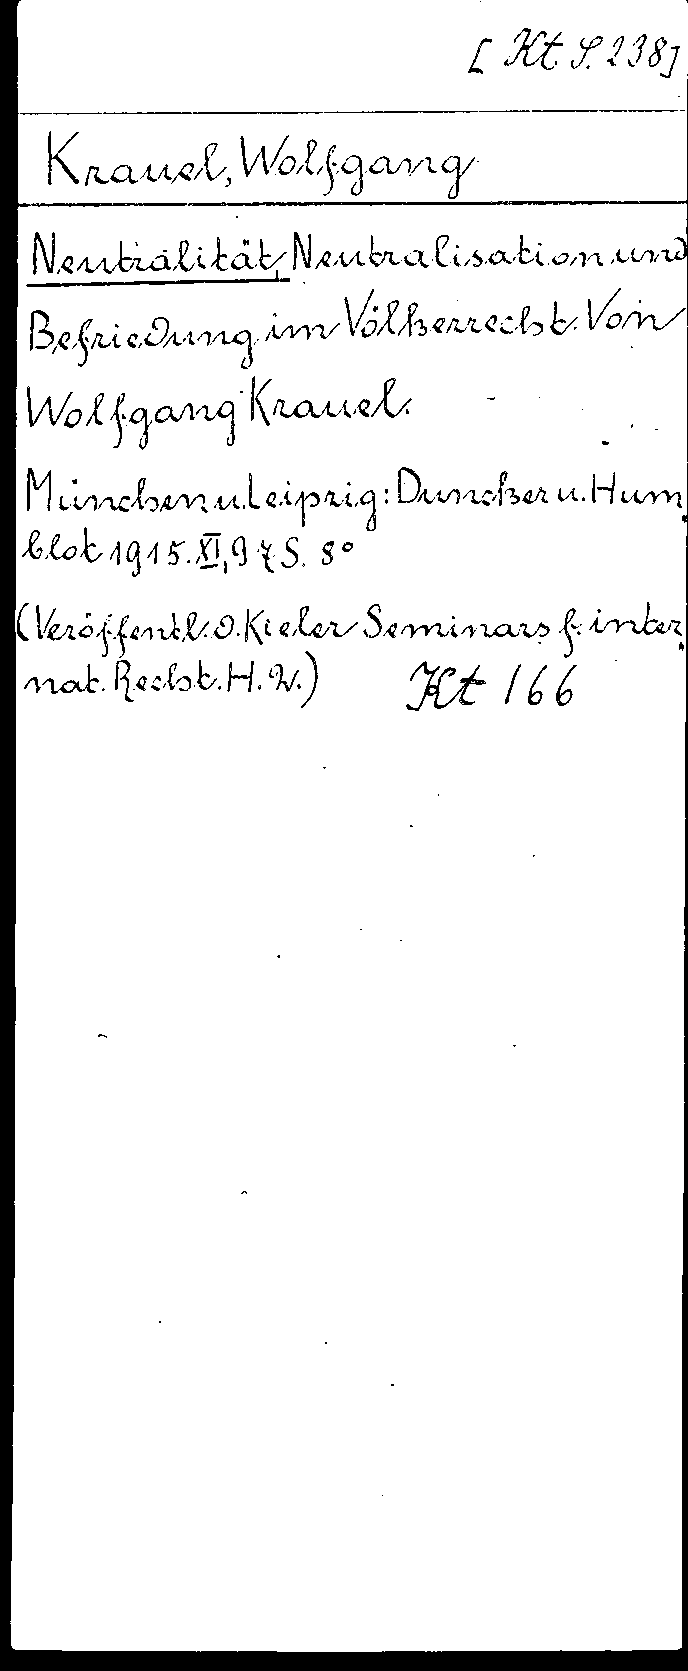 [Kt. S. 238]
Krauel, Wolfgang
Neutralität, Neutralisation und
Befriedung im Völkerrecht. Von
Wolfgang Krauel.
München u. Leipzig: Duncker u. Hum-
blot 1915. XI, 97 S. 8°
(Veröffentl. d. Kieler Seminars f. inter-
nat. Recht. H. 2.) Kt 166